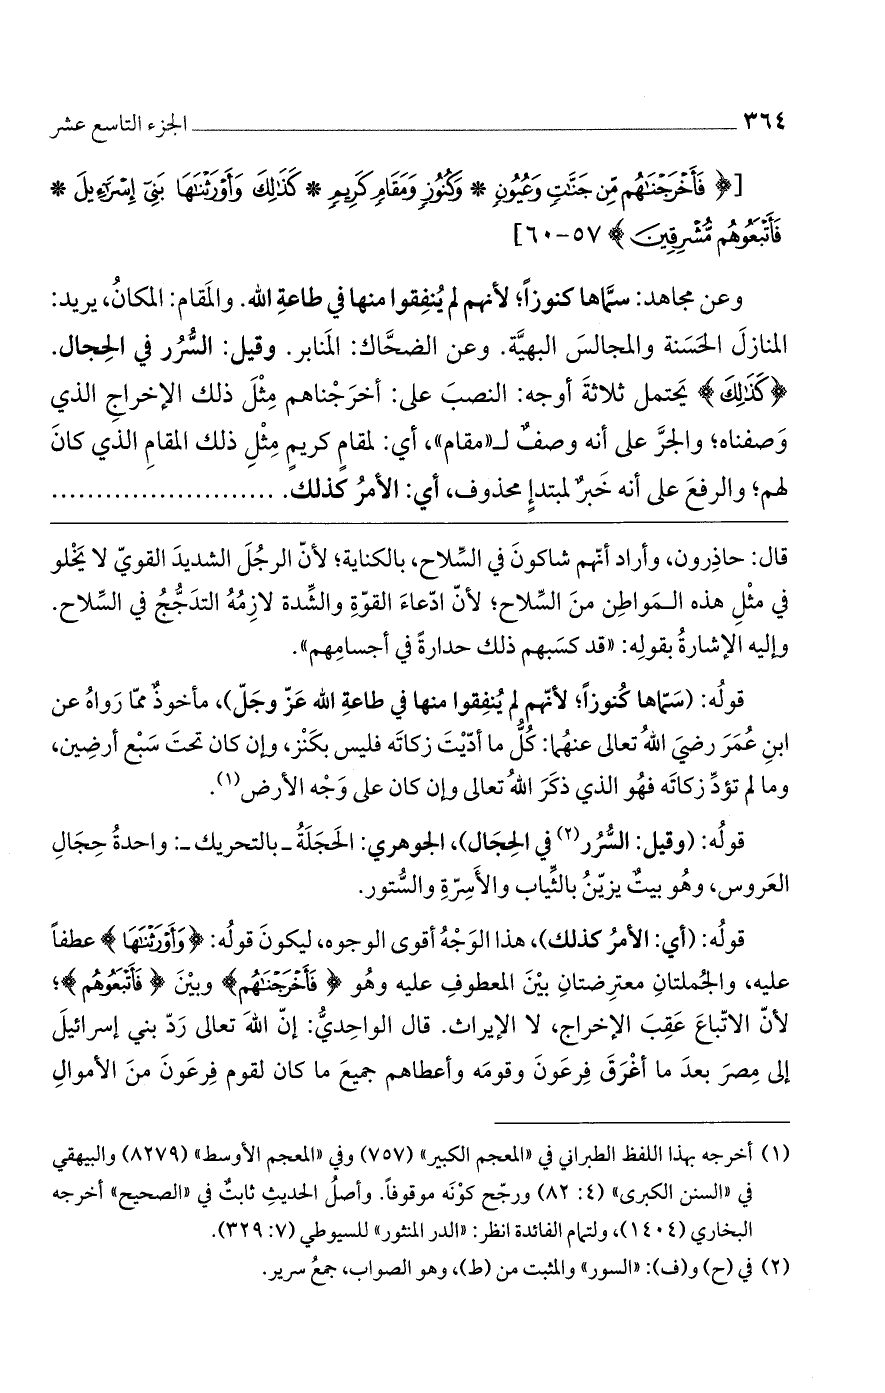 ٣٦٤ ــــــــــــــــ الجزء التاسع عشر
[﴿ فَأَخْرَجْنَاهُم مِّن جَنَّاتٍ وَعُيُونٍ * وَكُنُوزٍ وَمَقَامٍ كَرِيمٍ * كَذَٰلِكَ وَأَوْرَثْنَاهَا بَنِي إِسْرَائِيلَ *
فَأَتْبَعُوهُم مُّشْرِقِينَ ﴾ ٥٧-٦٠]
وعن مجاهد: سمَّاها كنوزاً؛ لأنهم لم يُنفِقوا منها في طاعةِ الله. والمَقام: المكانُ، يريد:
المنازلَ الحَسَنة والمجالسَ البهيَّة. وعن الضحَّاك: المَنابر. وقيل: السُّرُر في الحِجال.
﴿كَذَٰلِكَ﴾ يَحتمل ثلاثةَ أوجه: النصبَ على: أخرَجْناهم مِثْلَ ذلك الإخراجِ الذي
وَصفناه؛ والجرَّ على أنه وصفٌ لـ«مقام»، أي: لمقامٍ كريمٍ مِثْلِ ذلك المقامِ الذي كانَ
لهم؛ والرفعَ على أنه خَبرٌ لمبتدإٍ محذوف، أي: الأمرُ كذلك. ..........................
قال: حاذِرون، وأراد أنّهم شاكونَ في السِّلاح، بالكناية؛ لأنّ الرجُلَ الشديدَ القويّ لا يَخْلو
في مثْلِ هذه الـمَواطِن منَ السِّلاح؛ لأنّ ادّعاءَ القوّةِ والشِّدة لازِمُهُ التدَجُّجُ في السِّلاح.
وإليه الإشارةُ بقولِه: «قد كسَبهم ذلك حدارةً في أجسامِهم».
قولُه: (سَمّاها كُنوزاً؛ لأنّهم لم يُنفِقوا منها في طاعةِ الله عَزّ وجَلّ)، مأخوذٌ ممّا رَواهُ عن
ابنِ عُمَرَ رضيَ اللهُ تعالى عنهُما: كُلُّ ما أدّيْتَ زكاتَه فليس بكَنْز، وإن كان تحتَ سَبْع أرضِين،
وما لم تؤدِّ زكاتَه فهُو الذي ذكَرَ اللهُ تعالى وإن كان على وَجْه الأرض(١).
قولُه: (وقيل: السُّرُر(٢) في الحِجَال)، الجوهري: الحَجَلَةُ ـ بالتحريك ـ: واحدةُ حِجَالِ
العَروس، وهُو بيتٌ يزيّنُ بالثِّياب والأَسِرّةِ والسُّتور.
قولُه: (أي: الأمرُ كذلك)، هذا الوَجْهُ أقوى الوجوه، ليكونَ قولُه: ﴿وَأَوْرَثْنَاهَا﴾ عطفاً
عليه، والجُملتانِ معترِضتانِ بيْنَ المعطوفِ عليه وهُو ﴿ فَأَخْرَجْنَاهُم﴾ وبيْنَ ﴿ فَأَتْبَعُوهُم ﴾؛
لأنّ الاتّباعَ عَقِبَ الإخراج، لا الإيراث. قال الواحِديُّ: إنّ اللهَ تعالى رَدّ بني إسرائيلَ
إلى مِصرَ بعدَ ما أغْرَقَ فِرعَونَ وقومَه وأعطاهم جميعَ ما كان لقوم فِرعَونَ منَ الأموالِ
(١) أخرجه بهذا اللفظ الطبراني في «المعجم الكبير» (٧٥٧) وفي «المعجم الأوسط» (٨٢٧٩) والبيهقي
في «السنن الكبرى» (٤: ٨٢) ورجّح كوْنَه موقوفاً. وأصلُ الحديثِ ثابتٌ في «الصحيح» أخرجه
البخاري (١٤٠٤)، ولتمام الفائدة انظر: «الدر المنثور» للسيوطي (٧: ٣٢٩).
(٢) في (ح) و(ف): «السور» والمثبت من (ط)، وهو الصواب، جمعُ سرير.